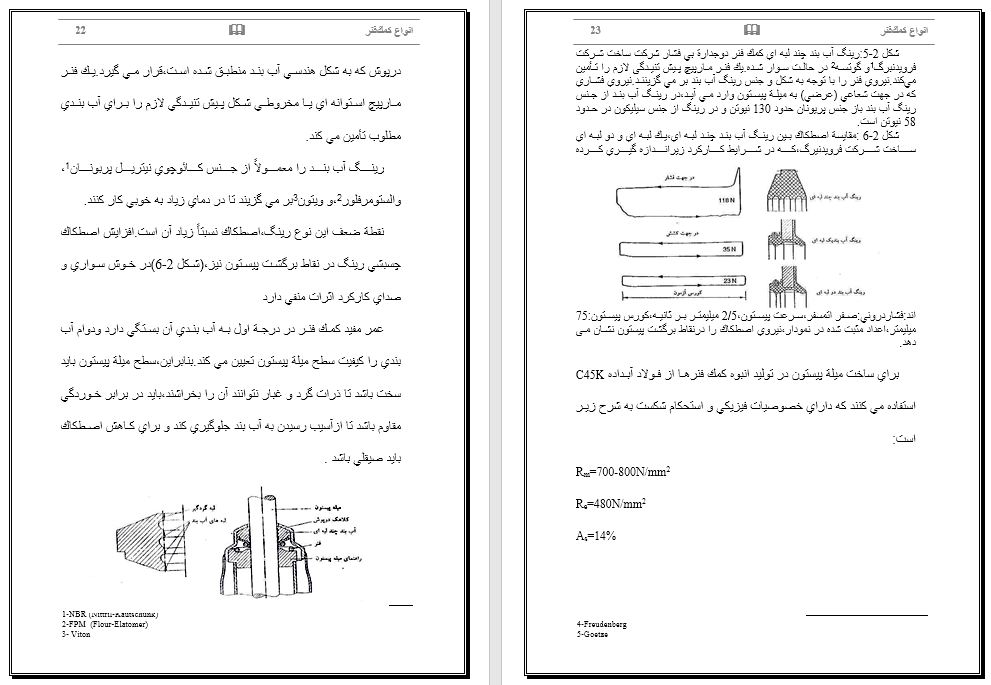 22
انواع كمك‌فنر
درپوش كه به شكل هندسي آب بند منطبق شده است،قرار مي گيرد.يك فنر
مارپيچ استوانه اي يا مخروطي شكل پيش تنيدگي لازم را براي آب بندي
مطلوب تأمين مي كند.
رينگ آب بند را معمولاً از جنس كائوچوي نيتريل پربونان1،
والستومرفلور2،و ويتون3بر مي گزيند تا در دماي زياد به خوبي كار كنند.
نقطة ضعف اين نوع رينگ،اصطكاك نسبتاً زياد آن است.افزايش اصطكاك
چسبشي رينگ در نقاط برگشت پيستون نيز،(شكل 2-6)در خوش سواري و
صداي كاركرد اثرات منفي دارد
عمر مفيد كمك فنر در درجة اول به آب بندي آن بستگي دارد ودوام آب
بندي را كيفيت سطح ميلة پيستون تعيين مي كند.بنابراين،سطح ميلة پيستون بايد
سخت باشد تا ذرات گرد و غبار نتوانند آن را بخراشند،بايد در برابر خوردگي
مقاوم باشد تا ازآسيب رسيدن به آب بند جلوگيري كند و براي كاهش اصطكاك
بايد صيقلي باشد .
لبه گردگير
لبه های آب بند
ميله پيستون
كلاهک درپوش
آب بند چند لبه ای
فنر
راهنمای ميله پيستون
1-NBR (Nittril-Kautschunk)
2-FPM (Flour-Elatomer)
3- Viton
23
انواع كمك‌فنر
شكل 2-5:رينگ آب بند چند لبه اي كمك فنر دوجدارة بي فشار شركت ساخت شركت
فرويدنبرگ4و گوتسه5 در حالت سوار شده.يك فنر مارپيچ پيش تنيدگي لازم را تأمين
مي‌كند.نيروي فنر را با توجه به شكل و جنس رينگ آب بند بر مي گزينند.نيروي فشاري
كه در جهت شعاعي (عرضي) به ميلة پيستون وارد مي آيد،در رينگ آب بند از جنس
رينگ آب بند باز جنس پربونان حدود 130 نيوتن و در رينگ از جنس سيليكون در حدود
58 نيوتن است.
شكل 2-6 :مقايسة اصطكاك بين رينگ آب بند چند لبه اي،يك لبه اي و دو لبه اي
ساخت شركت فرويدنبرگ،كه در شرايط كاركرد زيراندازه گيري كرده
در جهت فشار
118 N
رينگ آب بند چند لبه ای
در جهت كششی
35 N
رينگ آب بنديک لبه ای
23 N
كورس آزمون
رينگ آب بند دو لبه ای
اند:فشاردروني:صفر اتمسفر،سرعت پيستون،2/5 ميليمتر بر ثانيه،كورس پيستون:75
ميليمتر،اعداد مثبت شده در نمودار،نيروي اصطكاك را درنقاط برگشت پيستون نشان مي
دهد.
براي ساخت ميلة پيستون در توليد انبوه كمك فنرها از فولاد آبداده C45K
استفاده مي كنند كه داراي خصوصيات فيزيكي و استحكام شكست به شرح زير
است:
Rm=700-800N/mm2
Re=480N/mm2
As=14%
4-Freudenberg
5-Goetze